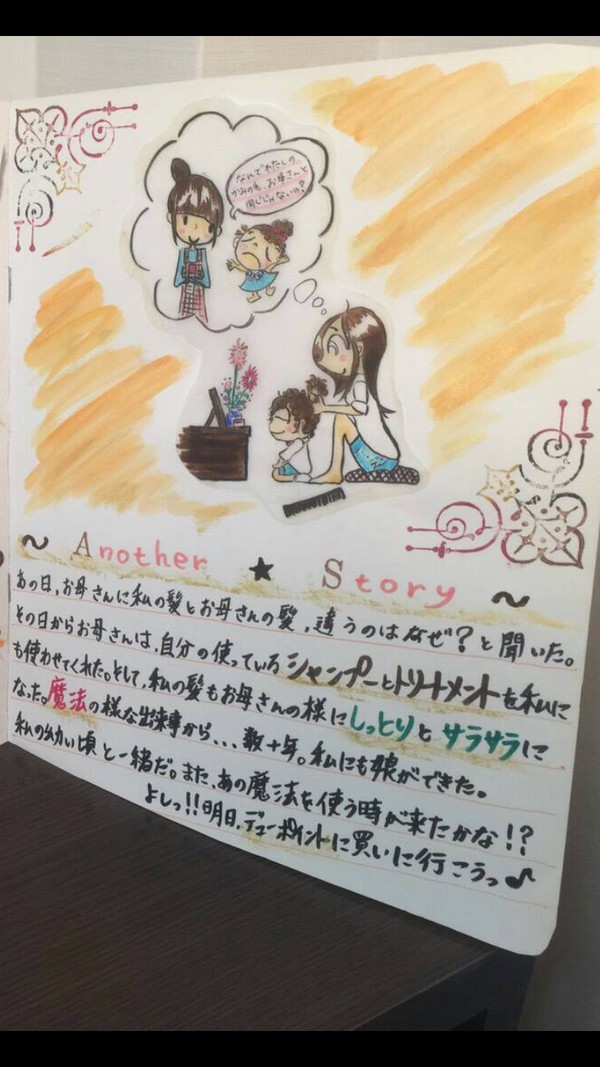 なんでわたしの
かみのも、お母さんと
同じじゃないの?
~ Another ★ Story ~
あの日、お母さんに私の髪とお母さんの髪、違うのはなぜ?と聞いた。
その日からお母さんは、自分の使っているシャンプーとトリートメントを私に
も使わせてくれた。そして、私の髪もお母さんの様にしっとりとサラサラに
なった。魔法の様な出来事から、、、数十年。私にも娘ができた。
私の幼い頃と一緒だ。また、あの魔法を使う時が来たかな!?
よしっ!!明日、デューポイントに買いに行こうっ♪